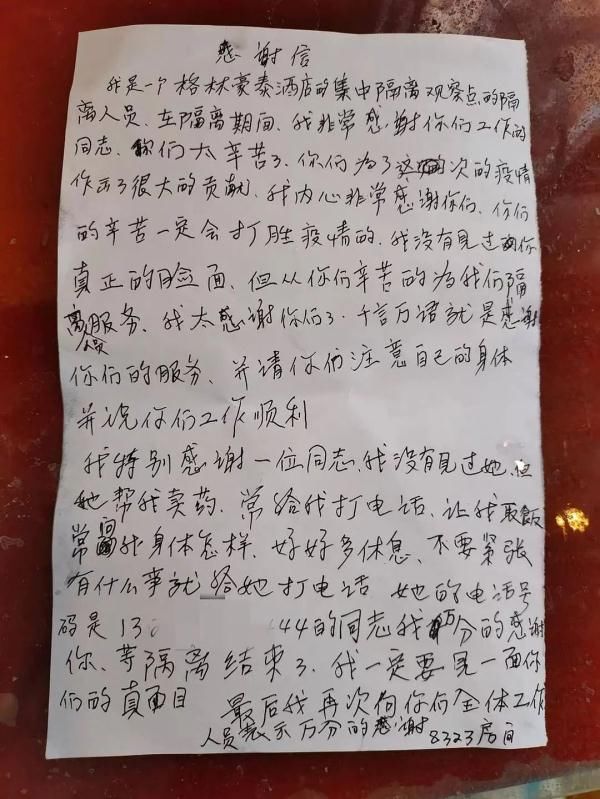 感谢信
我是一个格林豪泰酒店的集中隔离观察点的隔
离人员、在隔离期间、我非常感谢你们工作的
同志、你们太辛苦了、你们为了这次的疫情
作出了很大的贡献、我内心非常感谢你们、你们
的辛苦一定会打胜疫情的、我没有见过你
真正的脸面、但从你们辛苦的为我们隔
离人员服务、我太感谢你们了、千言万语就是感谢
你们的服务、并请你们注意自己的身体
并祝你们工作顺利
我特别感谢一位同志、我没有见过她、但
她帮我卖药、常给我打电话、让我取飯
常问我身体怎样、好好多休息、不要紧张
有什么事就给她打电话 她的电话号
码是13 44的同志我万分的感谢
你、等隔离结束了、我一定要见一面你
们的真面目 最后我再次向你们全体工作
人员表示万分的感谢 8323房间